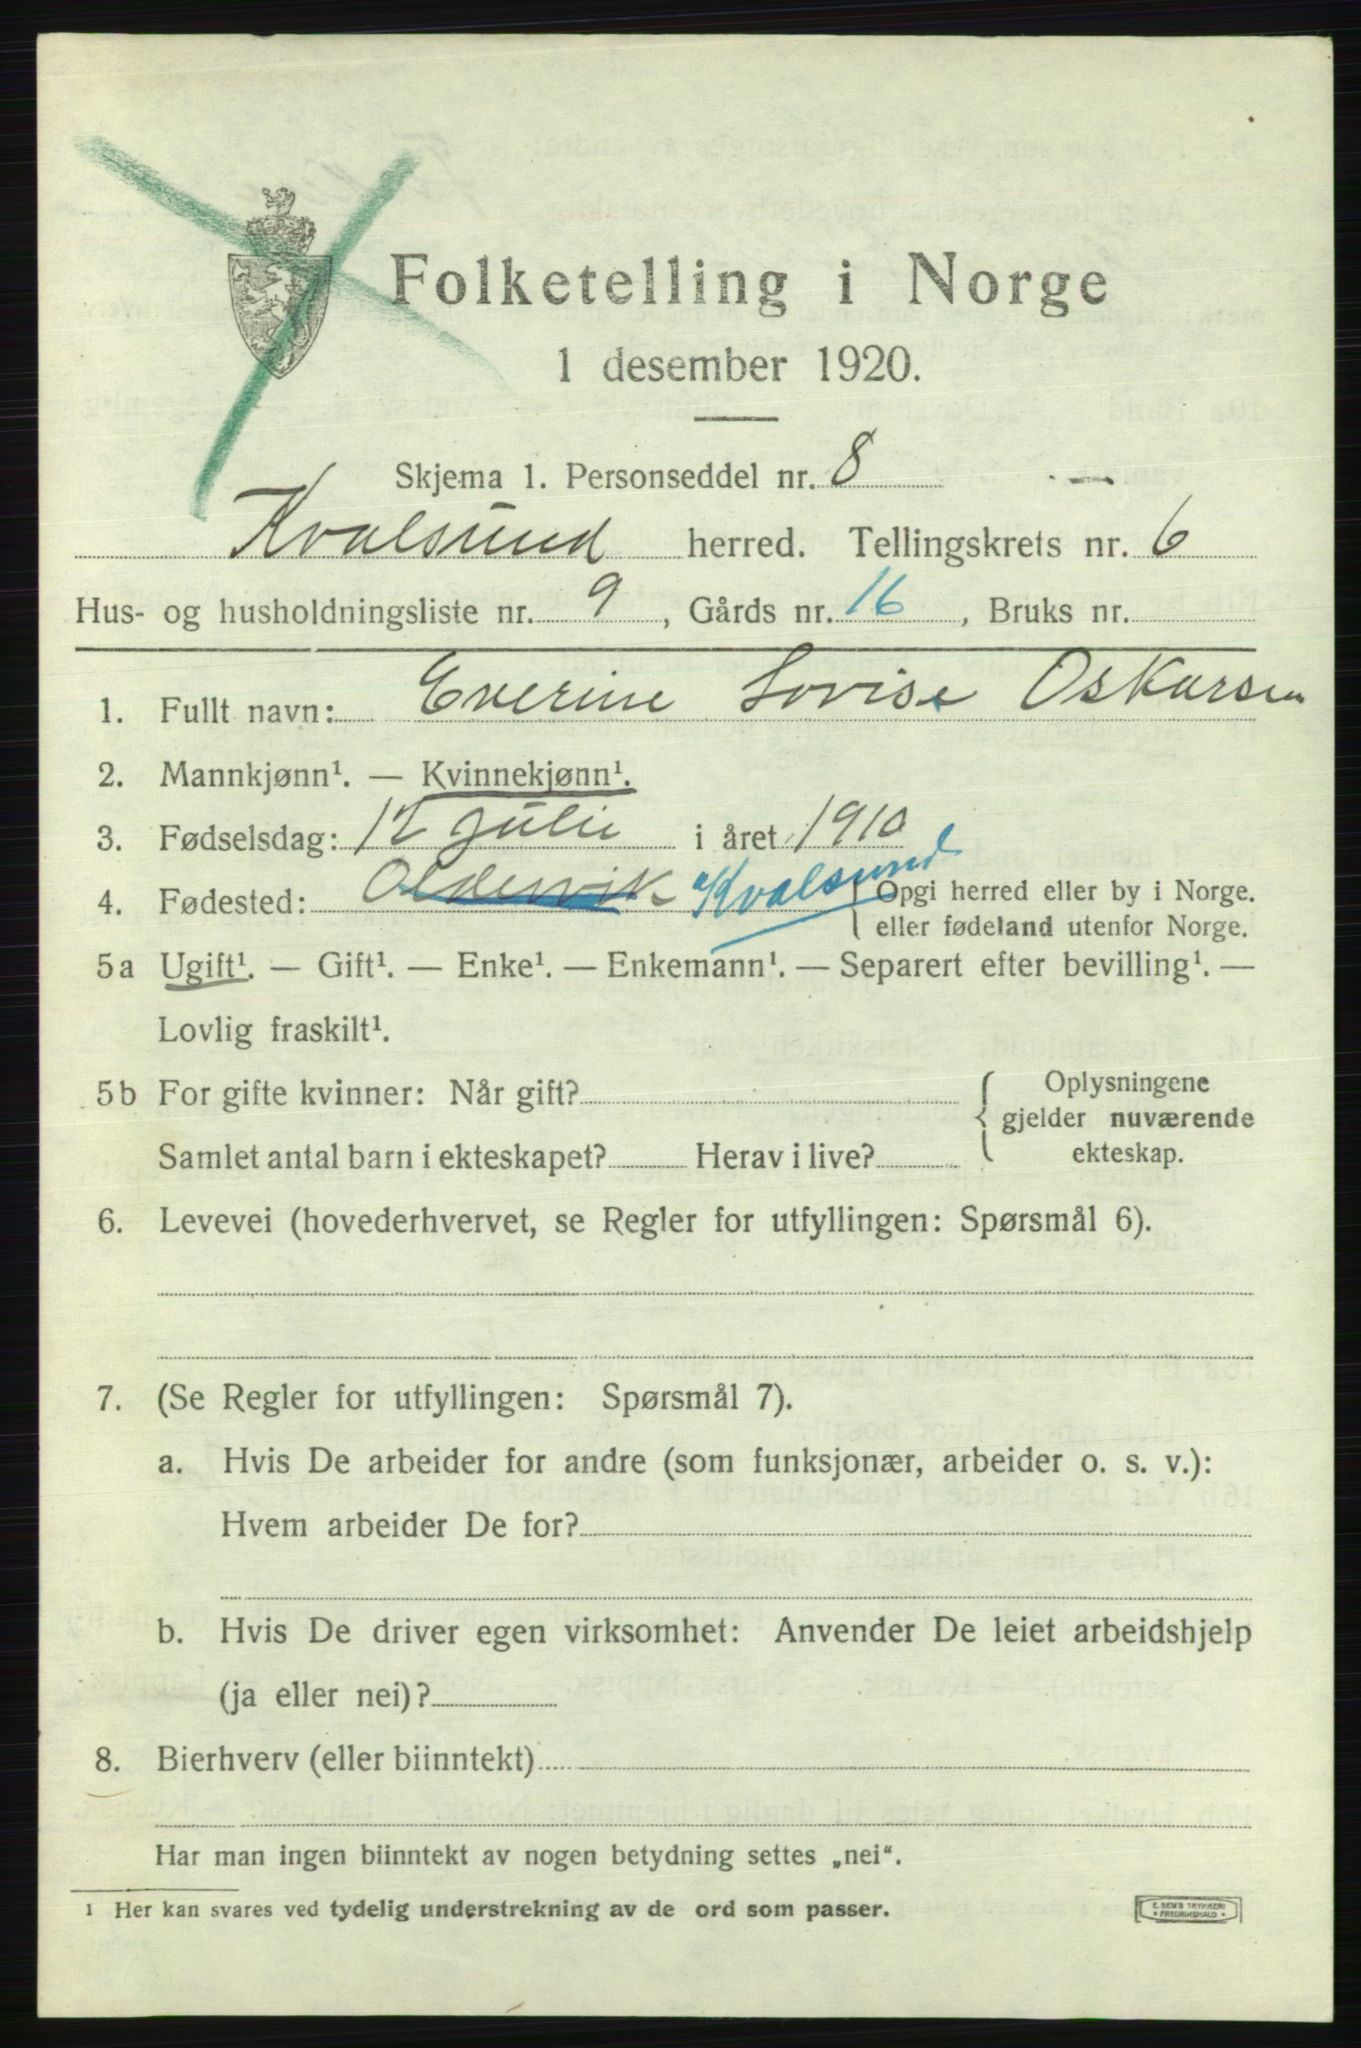 Folketelling i Norge
1 desember 1920.
Skjema 1. Personseddel nr. 8
Kvalsund herred. Tellingskrets nr. 6
Hus- og husholdningsliste nr. 9, Gårds nr. 16, Bruks nr.
1. Fullt navn: Everine Lovise Oskarsen
2. Mannkjønn¹. — Kvinnekjønn¹.
3. Fødselsdag: 12 julii i året 1910
4. Fødested: Oldervik Kvalsund Opgi herred eller by i Norge.
eller fødeland utenfor Norge.
5a Ugift¹. — Gift¹. — Enke¹. — Enkemann¹. — Separert efter bevilling¹. —
Lovlig fraskilt¹.
5b For gifte kvinner: Når gift? Oplysningene
gjelder nuværende
Samlet antal barn i ekteskapet? Herav i live? ekteskap.
6. Levevei (hovederhvervet, se Regler for utfyllingen: Spørsmål 6).
7. (Se Regler for utfyllingen: Spørsmål 7).
a. Hvis De arbeider for andre (som funksjonær, arbeider o. s. v.):
Hvem arbeider De for?
b. Hvis De driver egen virksomhet: Anvender De leiet arbeidshjelp
(ja eller nei)?
8. Bierhverv (eller biinntekt)
Har man ingen biinntekt av nogen betydning settes „nei“.
1 Her kan svares ved tydelig understrekning av de ord som passer.
E. SEM'S TRYKKERI
FREDRIKSHALD